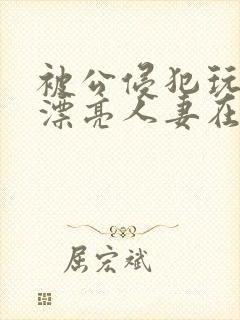 被公侵犯玩
漂亮人妻在
屈宏斌